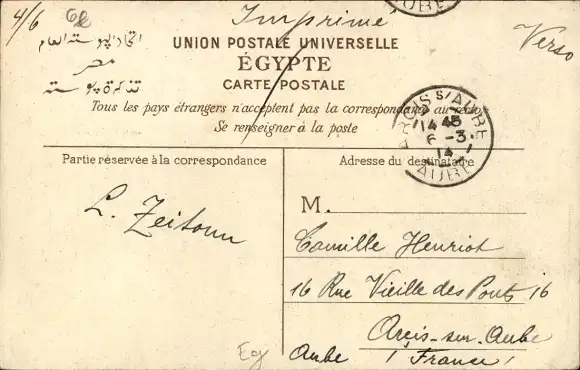 4/6
Imprimé
Verso
UNION POSTALE UNIVERSELLE
ÉGYPTE
CARTE POSTALE
مصر
Tous les pays étrangers n'acceptent pas la correspondance au recto
Se renseigner à la poste
ARCIS S/AUBE
14 45
6 - 3
14
AUBE
AUBE
Partie réservée à la correspondance
Adresse du destinataire
L. Zeitoun
M.
Camille Henriot
16 Rue Vieille des Ponts 16
Arcis-sur-Aube
Aube (France)
Eg